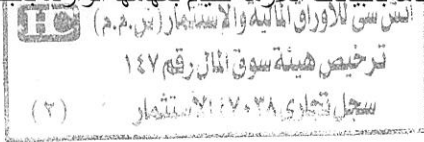 اتش سى للأوراق المالية والاستثمار (ش.م.م)
ترخيص هيئة سوق المال رقم ١٤٧
سجل تجارى ١٧٠٣٨ الاستثمار
(٢)